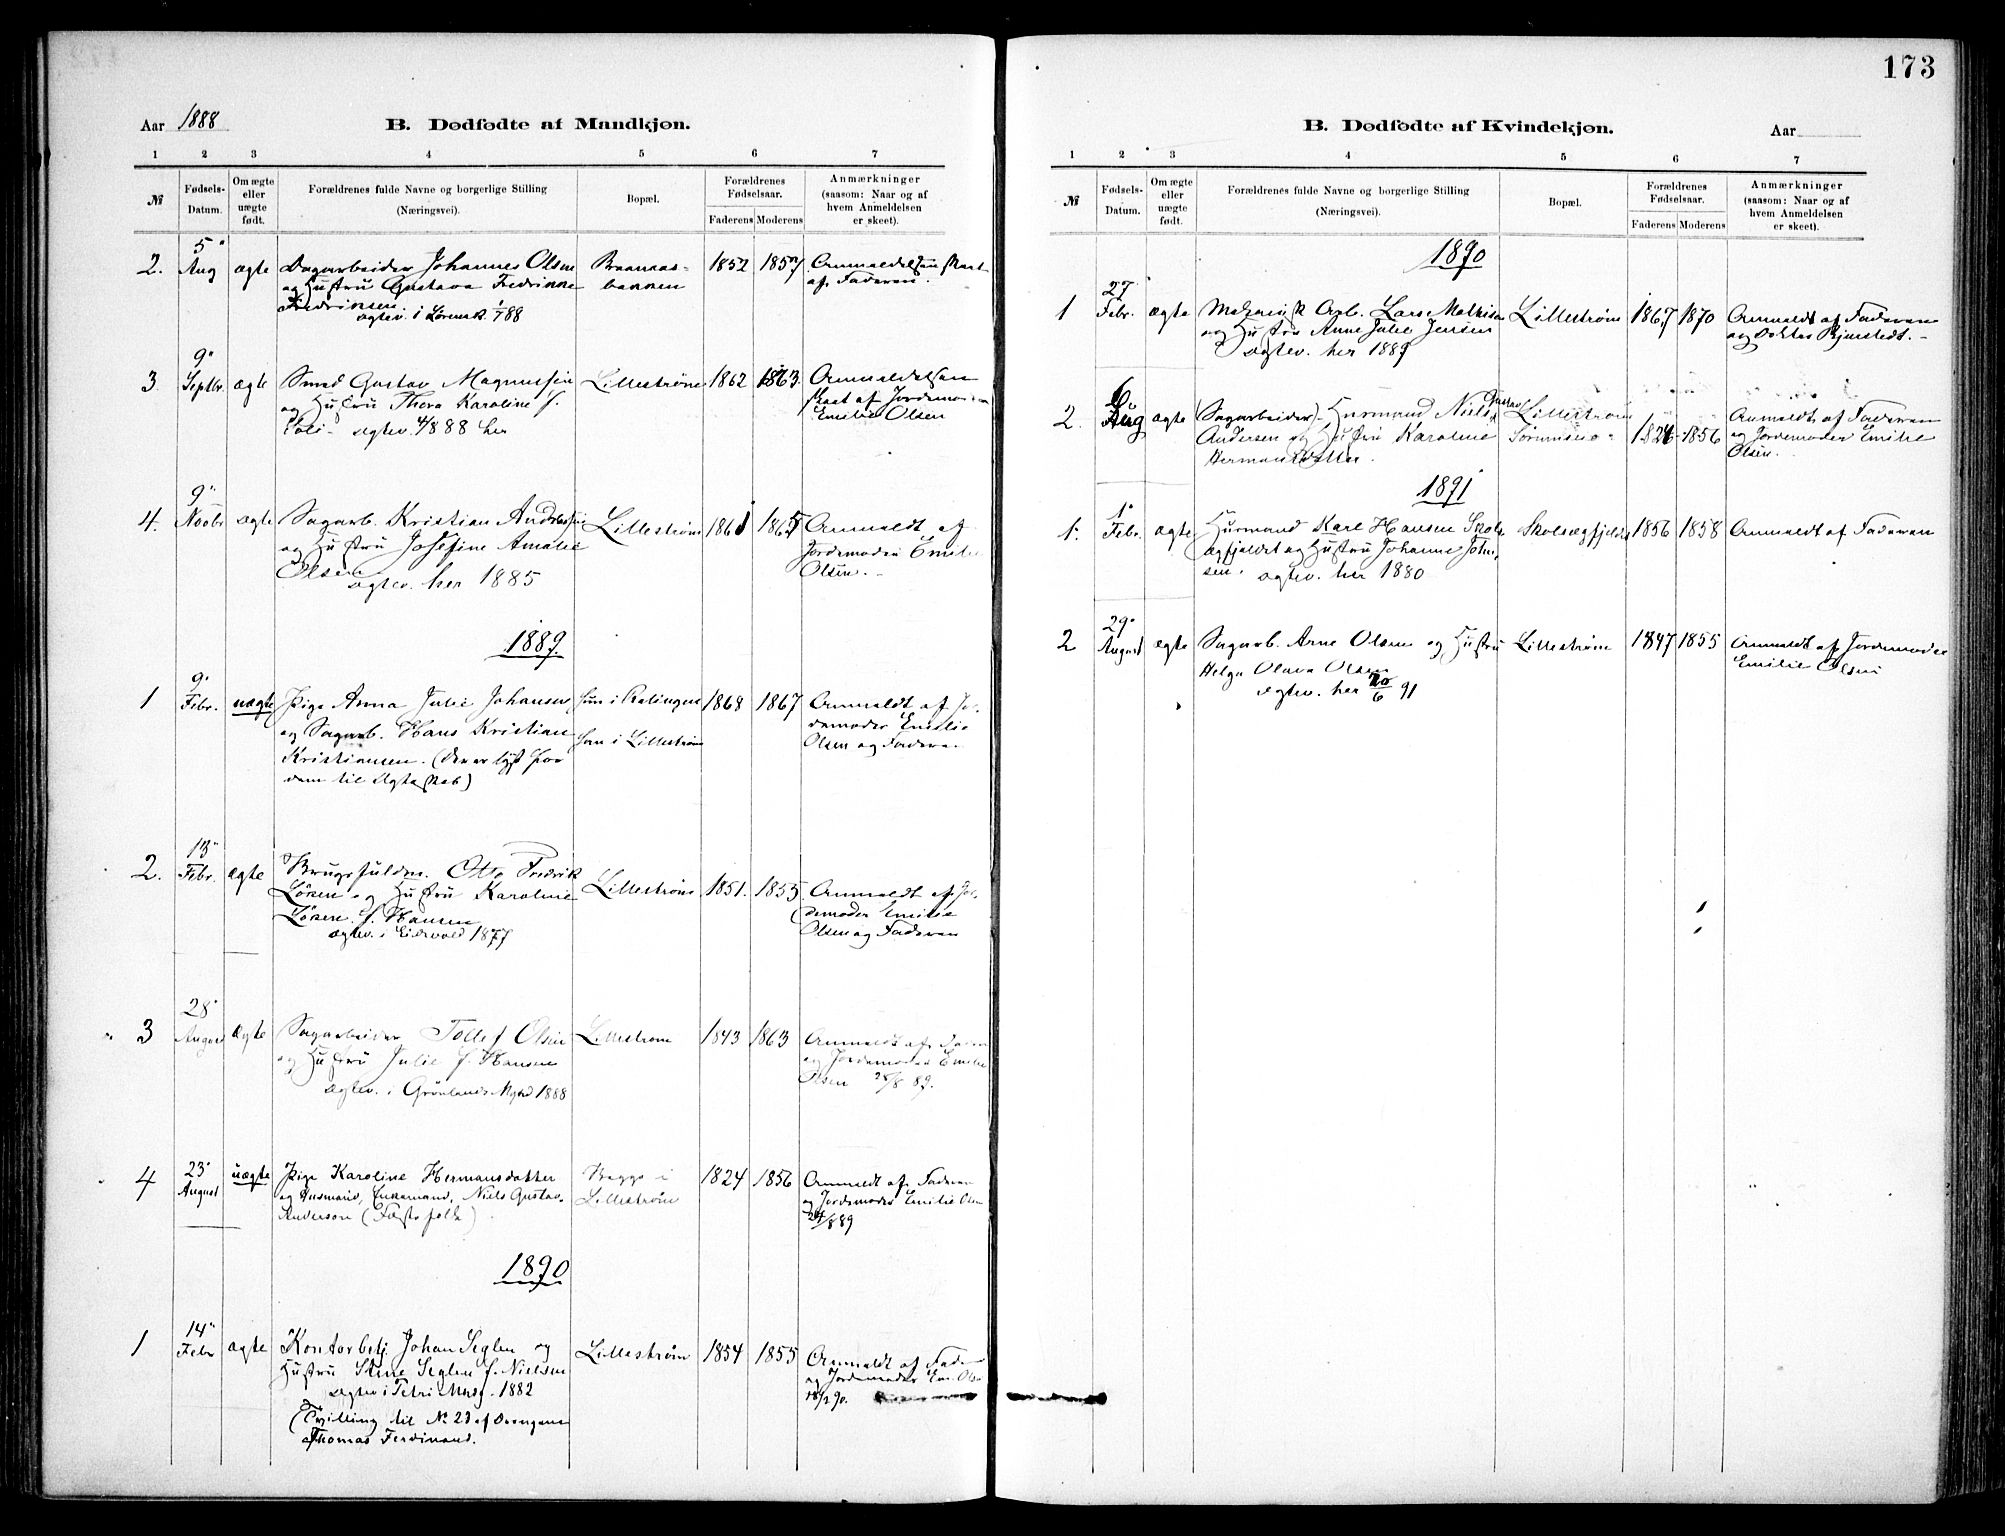 173
Aar 1888
B. Dødfødte af Mandkjøn.
1 2 3 4 5 6 7
№
Fødsels-Datum.
Om ægte eller uægte født.
Forældrenes fulde Navne og borgerlige Stilling
(Næringsvei).
Bopæl.
Forældrenes Fødselsaar.
Faderens Moderens
Anmærkninger
(saasom: Naar og af
hvem Anmeldelsen
er skeet).
2. 5 Aug ægte
Dagarbeider Johannes Olsen
og Hustru Gustava Fredrikke
Fredriksen
ægtev. i Lørensk. 88
bakken
1852 1857
Anmeldelsen skeet
af Faderen.
3 9 Septbr. ægte
Smed Gustav Magnussen
og Hustru Thora Karoline f.
ægtev. 88 her
Lillestrøm
1862 1863.
Anmeldelsen
skeet af Jordemoder
Emilie Olsen
4. 9 Novbr ægte
Sagarb. Kristian Andersen
og Hustru Josefine Amalie
Olsen
ægtev. her 1885
Lillestrøm
1861 1865
Anmeldt af
Jordemoder Emilie
Olsen.
1889.
1 9 Febr. uægte
Pige Anna Julie Johansen
og Sagarb. Hans Kristian
Kristiansen. (der er lyst for
dem til Ægteskab)
hun i Rælingen
han i Lillestrøm
1868 1867
Anmeldt af Jor-
demoder Emilie
Olsen og Faderen
2. 13 Febr. ægte
Brugsfuldm. Otto Fredrik
Løken og Hustru Karoline
Løken f. Hansen
ægtev. i Eidsvold 1877
Lillestrøm
1851. 1855
Anmeldt af Jor-
demoder Emilie
Olsen og Faderen
3 28 August ægte
Sagarbeider Tollef Olsen
og Hustru Julie f. Hansen
ægtev. i Grønlands Mghd 1888
Lillestrøm
1843 1863
Anmeldt af Faderen
og Jordemoder Emilie
Olsen 28/8 89.
4 23 August uægte
Pige Karoline Hermansdatter
og Husmand, Enkemand, Niels Gustav
Anderson (Fæstefolk)
Begge i
Lillestrøm
1824 1856
Anmeldt af Faderen
og Jordemoder Emilie Olsen
24/8 89
1890
1 14 Febr ægte
Kontorbetj. Johan Seglen og
Hustru Stine Seglen f. Nielsen
ægtev i Petri Mngh. 1882
(Tvilling til № 23 af Drengene
Thomas Ferdinand.
Lillestrøm
1854 1855
Anmeldt af Fader
og Jordemoder Em. Olsen
18/2 90.
B. Dødfødte af Kvindekjøn.
Aar
1 2 3 4 5 6 7
№
Fødsels-Datum.
Om ægte eller uægte født.
Forældrenes fulde Navne og borgerlige Stilling
(Næringsvei).
Bopæl.
Forældrenes Fødselsaar.
Faderens Moderens
Anmærkninger
(saasom: Naar og af
hvem Anmeldelsen
er skeet).
1890
1 27 Febr. ægte
Arb. Lars Mathisen
og Hustru Anne Julie Jensen
ægtev. her 1889
Lillestrøm
1867 1870
Anmeldt af Faderen
og Doktor
2. 6 Aug ægte
(Sagarbeider) Husmand Niels Gustav
Andersen og Hustru Karoline
Hermansdatter.
Lillestrøm
1824 1856
Anmeldt af Faderen
og Jordemoder Emilie
Olsen.
1891
1. 1 Febr. ægte
Husmand Karl Hansen Skols-
ægfjeldet og Hustru Johanne John-
sen. ægtev. her 1880
Skolsægfjeldet
1856 1858
Anmeldt af Faderen
2 29 August ægte
Sagarb. Arne Olsen og Hustru
Helga Olava Olsen
ægtev. her 20/6 91
Lillestrøm
1847 1855
Anmeldt af Jordemoder
Emilie Olsen